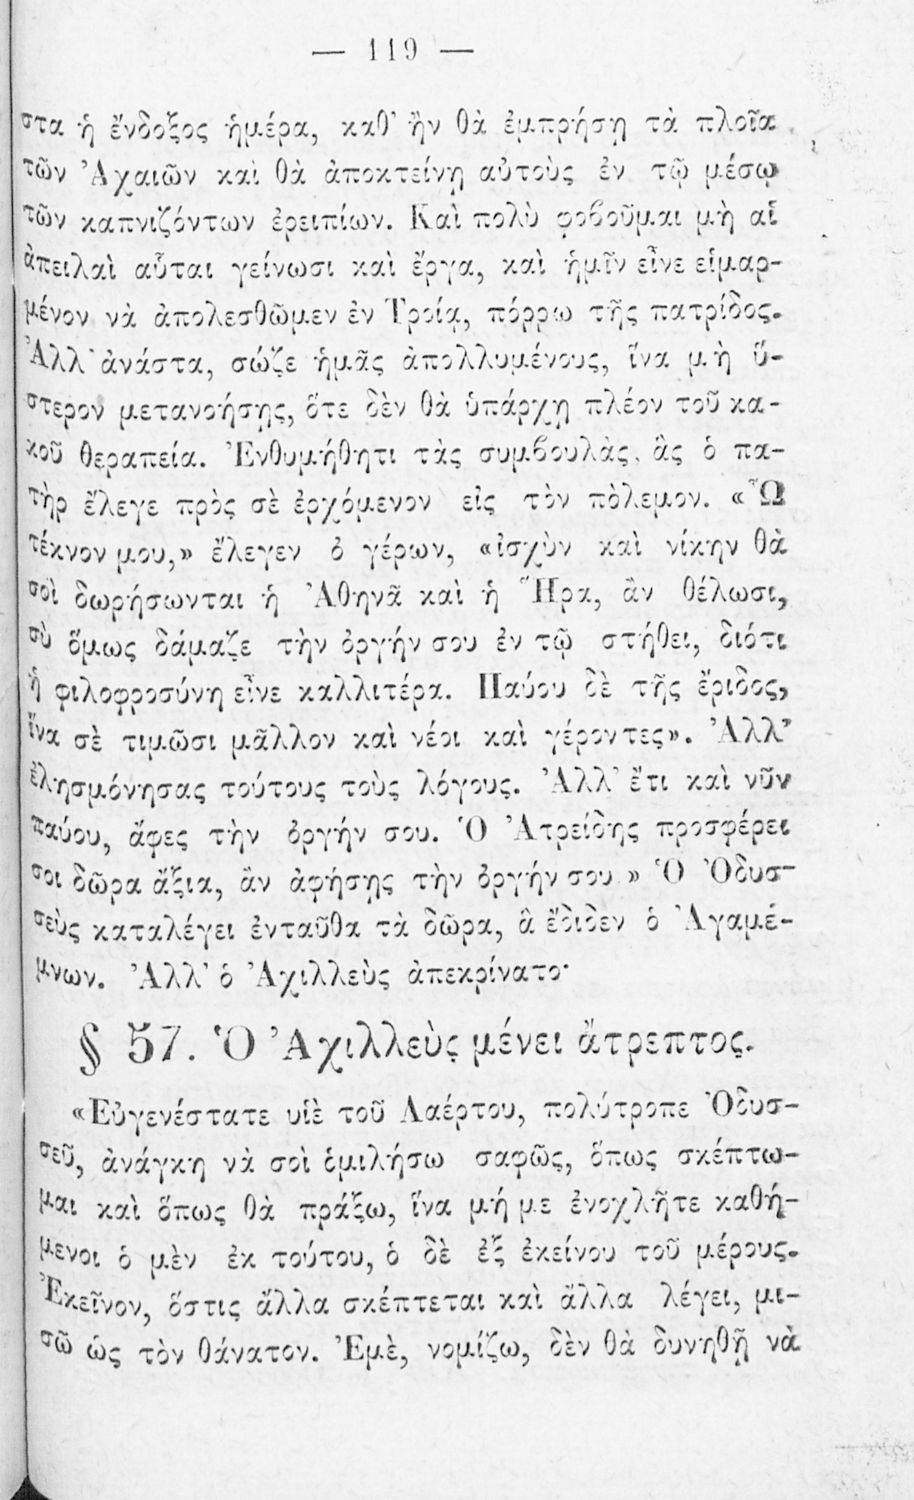 — 119 —
στα ἡ ἔνδοξος ἡμέρα, καθ' ἣν θὰ ἐμπρήσῃ τὰ πλοῖα
τῶν Ἀχαιῶν καὶ θὰ ἀποκτείνῃ αὐτοὺς ἐν τῷ μέσῳ
τῶν καπνιζόντων ἐρειπίων. Καὶ πολὺ φοβοῦμαι μὴ αἱ
ἀπειλαὶ αὗται γείνωσι καὶ ἔργα, καὶ ἡμῖν εἶνε εἱμαρ-
μένον νὰ ἀπολεσθῶμεν ἐν Τροίᾳ, πόρρω τῆς πατρίδος.
Ἀλλ' ἀνάστα, σῶζε ἡμᾶς ἀπολλυμένους, ἵνα μὴ ὕ-
στερον μετανοήσῃς, ὅτε δὲν θὰ ὑπάρχῃ πλέον τοῦ κα-
κοῦ θεραπεία. Ἐνθυμήθητι τὰς συμβουλὰς, ἃς ὁ πα-
τὴρ ἔλεγε πρὸς σὲ ἐρχόμενον εἰς τὸν πόλεμον. «Ὦ
τέκνον μου,» ἔλεγεν ὁ γέρων, «ἰσχὺν καὶ νίκην θὰ
σοὶ δωρήσωνται ἡ Ἀθηνᾶ καὶ ἡ Ἥρα, ἂν θέλωσι,
σὺ ὅμως δάμαζε τὴν ὀργήν σου ἐν τῷ στήθει, διότι
ἡ φιλοφροσύνη εἶνε καλλιτέρα. Παύου δὲ τῆς ἔριδος,
ἵνα σὲ τιμῶσι μᾶλλον καὶ νέοι καὶ γέροντες». Ἀλλ'
ἐλησμόνησας τούτους τοὺς λόγους. Ἀλλ' ἔτι καὶ νῦν
παύου, ἄφες τὴν ὀργήν σου. Ὁ Ἀτρείδης προσφέρει
σοι δῶρα ἄξια, ἂν ἀφήσῃς τὴν ὀργήν σου.» Ὁ Ὀδυσ-
σεὺς καταλέγει ἐνταῦθα τὰ δῶρα, ἃ ἔδιδεν ὁ Ἀγαμέ-
μνων. Ἀλλ' ὁ Ἀχιλλεὺς ἀπεκρίνατο·
§ 57. Ὁ Ἀχιλλεὺς μένει ἄτρεπτος.
«Εὐγενέστατε υἱὲ τοῦ Λαέρτου, πολύτροπε Ὀδυσ-
σεῦ, ἀνάγκη νὰ σοὶ ὁμιλήσω σαφῶς, ὅπως σκέπτω-
μαι καὶ ὅπως θὰ πράξω, ἵνα μή με ἐνοχλῆτε καθή-
μενοι ὁ μὲν ἐκ τούτου, ὁ δὲ ἐξ ἐκείνου τοῦ μέρους.
Ἐκεῖνον, ὅστις ἄλλα σκέπτεται καὶ ἄλλα λέγει, μι-
σῶ ὡς τὸν θάνατον. Ἐμὲ, νομίζω, δὲν θὰ δυνηθῇ νὰ